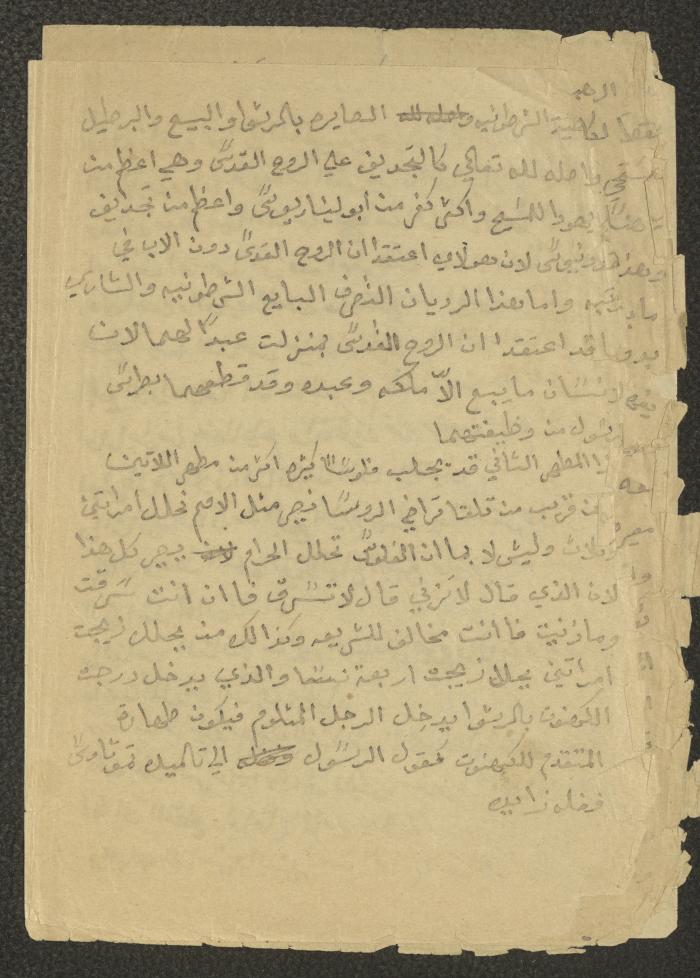 الرهب
لخاصية الشرطونيه واصله لله الصايره بالرشوا والبيع والبرطيل
واصله لله تعالي كالتجديف علي الروح القدس وهي اعظم من
يهودا للمسيح واكثر كفر من ابوليناريوس واعظم من تجديف
لان هولاي اعتقدا ان الروح القدس دون الاب في
واما هذا الرديان التصرف البايع الشرطونيه والشاري
قد اعتقدا ان الروح القدس بمنزلت عبدًا لهما لان
الانسان ما يبيع الّا ملكه وعبده وقد قطعهما بطرس
الرسول من وظيفتهما
المطهر الثاني قد يجلب فلوسًا كثيره اكثر من مطهر اللاتين
عن قريب من قلت تراخي الروسا نصير مثل الامم نحلل امراتين
وثلاث وليش لا بما ان الفلوس تحلل الحرام لان يصير كل هذا
لان الذي قال لا تزني قال لا تسرق فاان انت سرقت
وما زنيت فاانت مخالف للشريعه وكذالك من يحلل زيجت
امراتين يحلل زيجت اربعة نسا والذي يدخل درجت
الكهنوت بالرشوا يدخل الرجل المثلوم فيكون طهارة
المتقدم للكهنوت كقول الرسول الي تلميذه تيموثاوس
فضله زايده